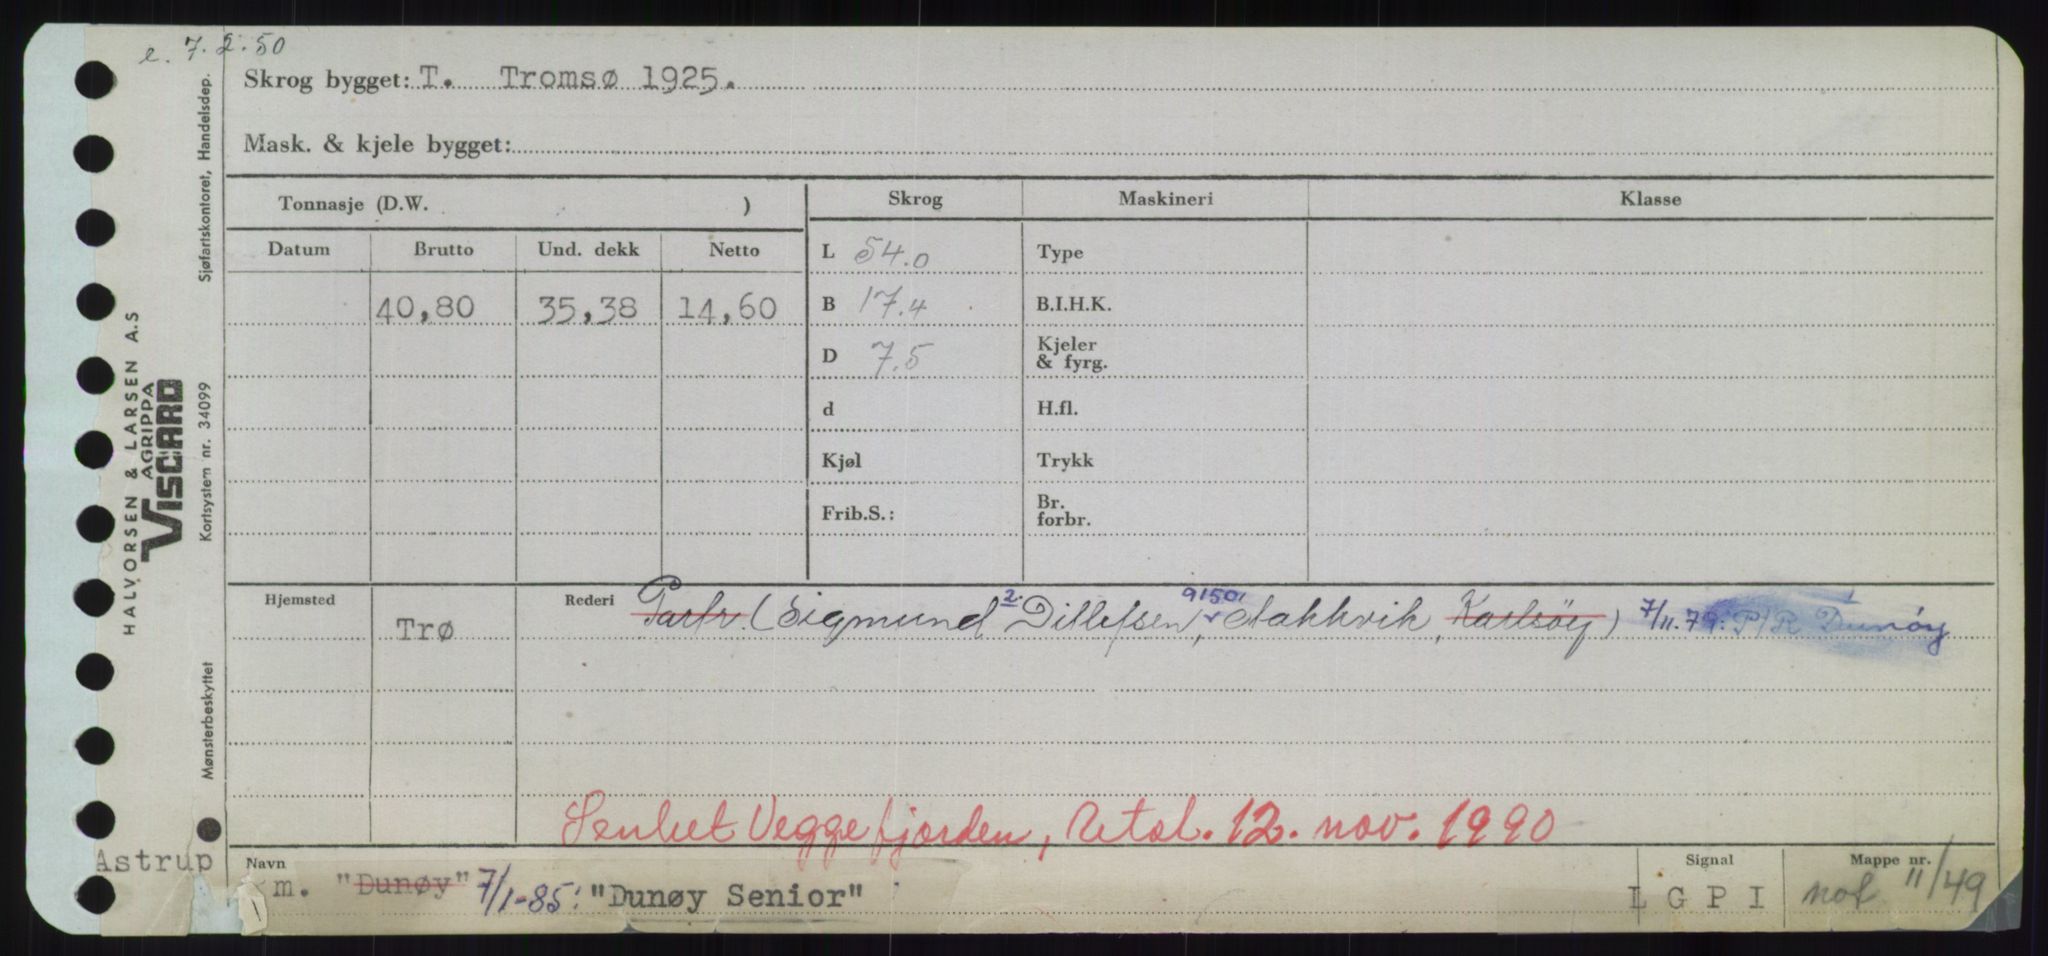 e. 7.2.50
Skrog bygget: T. Tromsø 1925.
Mask. & kjele bygget:
Tonnasje (D.W. )
Skrog Maskineri Klasse
Datum Brutto Und. dekk Netto
40,80 35,38 14,60
L 54.0 Type
B 17.4 B.I.H.K.
D 7.5 Kjeler & fyrg.
d H.fl.
Kjøl Trykk
Frib.S.: Br. forbr.
Hjemsted Trø Rederi Partr. (Sigmund Ditlefsen, 9150 Stakkvik, Karlsøy) 7/11.79: P/R Dunøy
2.
Senket Veggefjorden, 12. nov. 1990
Astrup
Navn Signal Mappe nr.
m. "Dunøy" 7/1-85: "Dunøy Senior" L G P I not 11/49
HALVORSEN & LARSEN A.S
AGRIPPA
VISCARD
Mønsterbeskyttet Kortsystem nr. 34099 Sjøfartskontoret, Handelsdep.